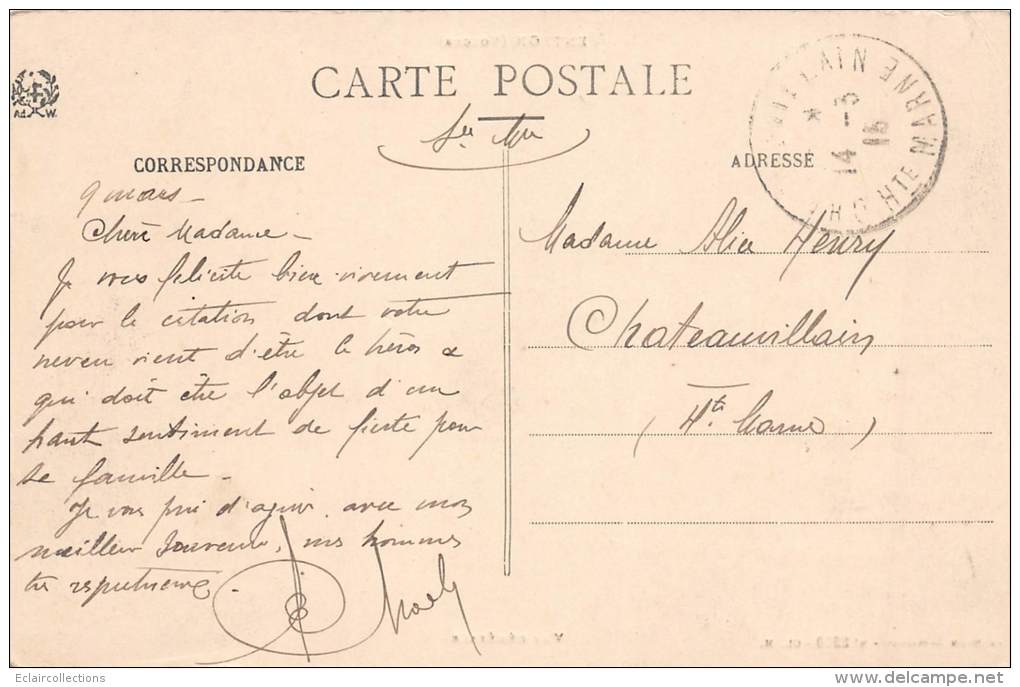 CARTE POSTALE
CORRESPONDANCE
ADRESSE
CHATEAUVILLAIN
HTE MARNE
14 - 3
15
9 mars -
Chère Madame -
Je vous félicite bien vivement
pour la citation dont votre
neveu vient d'être le héros &
qui doit être l'objet d'un
haut sentiment de fierté pour
sa famille -
Je vous prie d'agréer, avec mon
meilleur souvenir, mes hommages
très respectueux.
Madame Alice Henry
Chateauvillain
(Hte Marne)
Ad. W.
Eclaircollections
www.delcampe.net